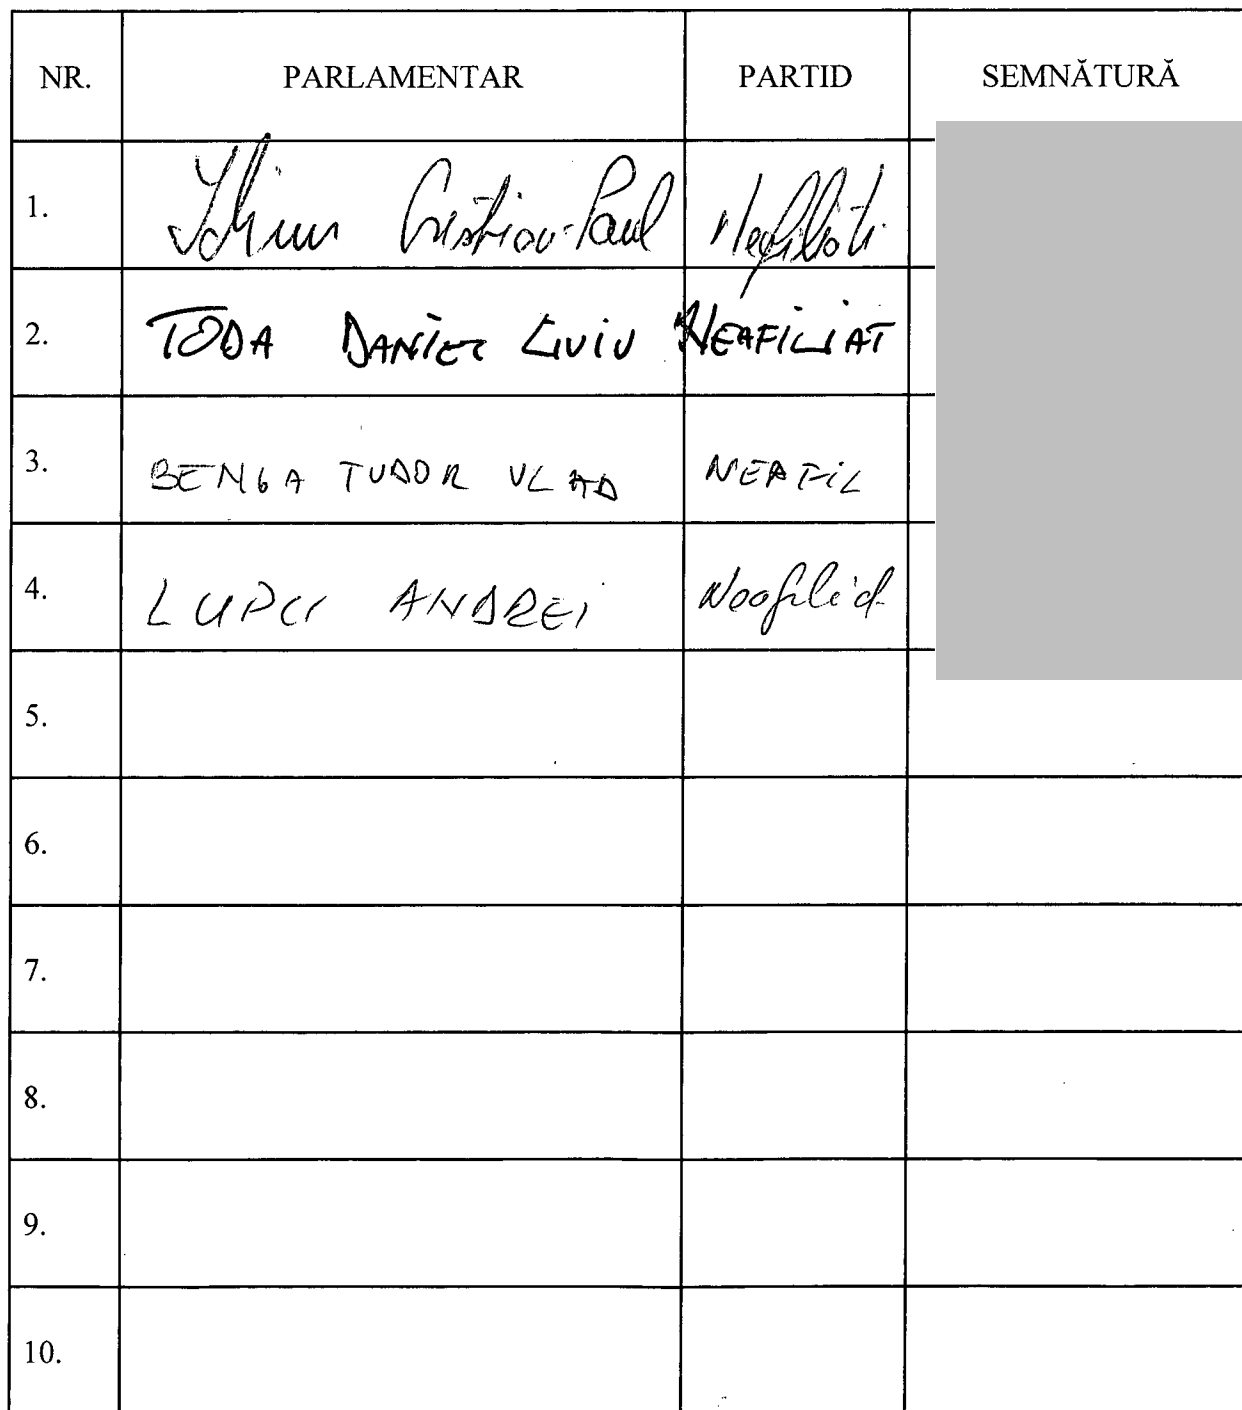 NR. PARLAMENTAR PARTID SEMNĂTURĂ
1. Ichim Cristian-Paul Neafiliati
2. TODA DANIEL LIVIU NEAFILIAT
3. BENGA TUDOR VLAD NEAFIL
4. LUPU ANDREI Neafiliat
5.
6.
7.
8.
9.
10.